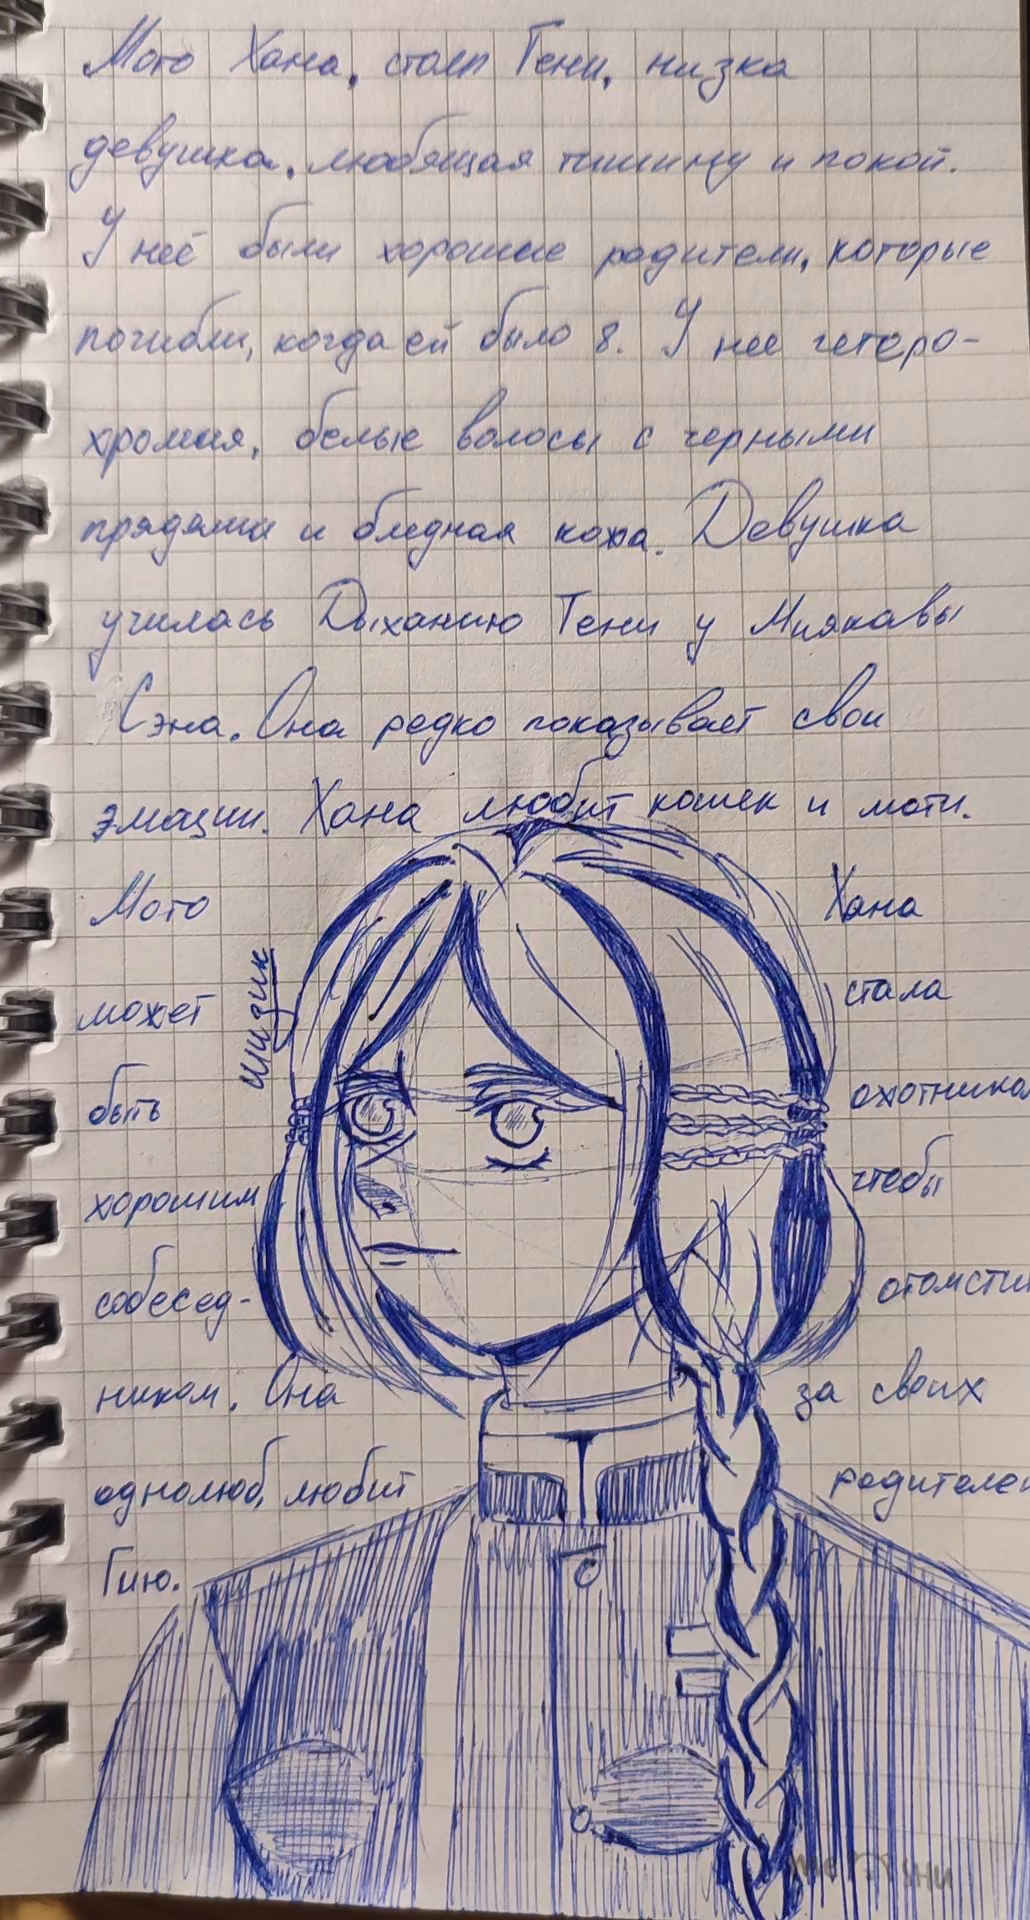 Мото Хана, столп Тени, низка
девушка, любящая тишину и покой.
У неё были хорошие родители, которые
погибли, когда ей было 8. У нее гетеро-
хромия, белые волосы с черными
прядями и бледная кожа. Девушка
училась Дыханию Тени у Миякавы
Сэна. Она редко показывает свои
эмации. Хана любит кошек и моти.
Мото
может
быть
хорошим
собесед-
ником. Она
однолюб, любит
Гию.
шизик
Хана
стала
охотником
чтобы
отомстит
за своих
родителей